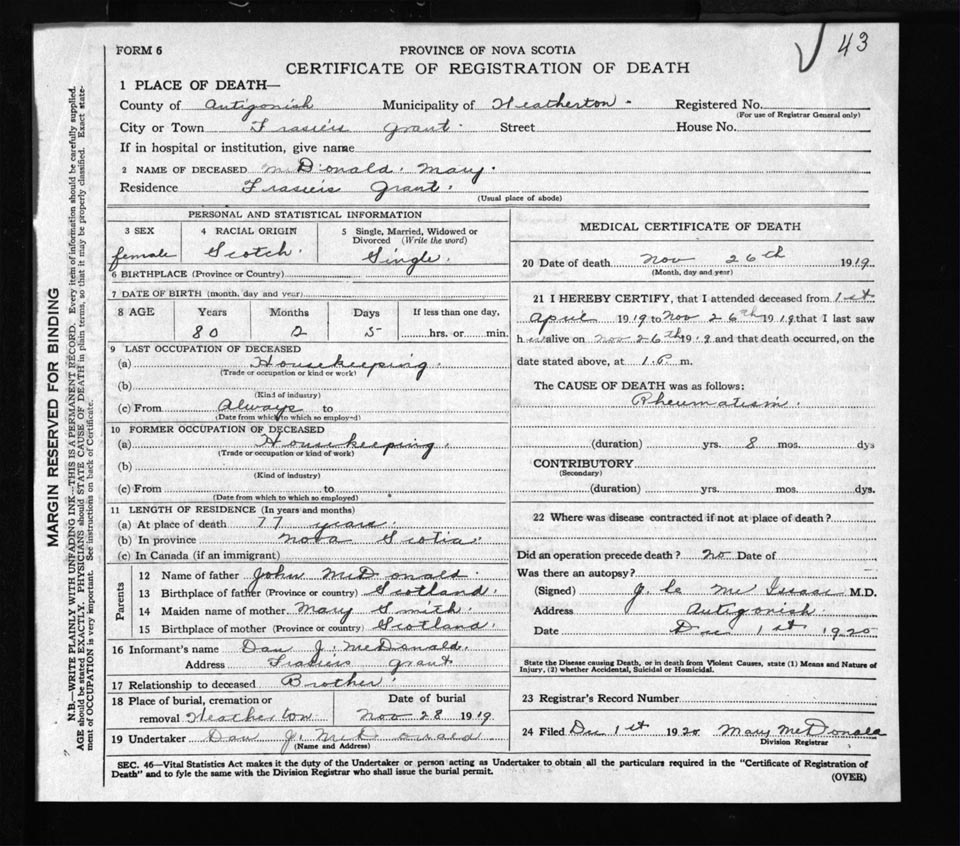 43
FORM 6
PROVINCE OF NOVA SCOTIA
CERTIFICATE OF REGISTRATION OF DEATH
1 PLACE OF DEATH—
County of Antigonish Municipality of Heatherton Registered No.
(For use of Registrar General only)
City or Town Frasier's Grant Street House No.
If in hospital or institution, give name
2 NAME OF DECEASED McDonald. Mary.
Residence Frasiers Grant.
(Usual place of abode)
PERSONAL AND STATISTICAL INFORMATION
3 SEX 4 RACIAL ORIGIN 5 Single, Married, Widowed or Divorced (Write the word)
female Scotch. Single.
6 BIRTHPLACE (Province or Country)
7 DATE OF BIRTH (month, day and year)
8 AGE Years Months Days If less than one day,
80 2 5 hrs. or min.
9 LAST OCCUPATION OF DECEASED
(a) Housekeeping.
(Trade or occupation or kind or work)
(b)
(Kind of industry)
(c) From Always to
(Date from which to which so employed)
10 FORMER OCCUPATION OF DECEASED
(a) Housekeeping.
(Trade or occupation or kind of work)
(b)
(Kind of industry)
(c) From to
(Date from which to which so employed)
11 LENGTH OF RESIDENCE (In years and months)
(a) At place of death 77 years.
(b) In province Nova Scotia.
(c) In Canada (if an immigrant)
Parents
12 Name of father John McDonald.
13 Birthplace of father (Province or country) Scotland.
14 Maiden name of mother Mary Smith.
15 Birthplace of mother (Province or country) Scotland.
16 Informant's name Dan J. McDonald.
Address Frasiers Grant
17 Relationship to deceased Brother.
18 Place of burial, cremation or Date of burial
removal Heatherton Nov 28 1919.
19 Undertaker Dan J. McDonald
(Name and Address)
MEDICAL CERTIFICATE OF DEATH
20 Date of death Nov 26th 1919
(Month, day and year)
21 I HEREBY CERTIFY, that I attended deceased from 1st
April 1919 to Nov 26th 1919 that I last saw
her alive on Nov 26th 1919 and that death occurred, on the
date stated above, at 1.P.m.
The CAUSE OF DEATH was as follows:
Rheumatism.
(duration) yrs. 8 mos. dys
CONTRIBUTORY
(Secondary)
(duration) yrs. mos. dys.
22 Where was disease contracted if not at place of death?
Did an operation precede death? No Date of
Was there an autopsy?
(Signed) J. M.D.
Address Antigonish.
Date Dec 1st 1920
State the Disease causing Death, or in death from Violent Causes, state (1) Means and Nature of
Injury, (2) whether Accidental, Suicidal or Homicidal.
23 Registrar's Record Number
24 Filed Dec 1st 1920 Mary McDonald
Division Registrar
SEC. 46—Vital Statistics Act makes it the duty of the Undertaker or person acting as Undertaker to obtain all the particulars required in the "Certificate of Registration of
Death" and to fyle the same with the Division Registrar who shall issue the burial permit.
(OVER)
MARGIN RESERVED FOR BINDING
N.B.—WRITE PLAINLY WITH UNFADING INK—THIS IS A PERMANENT RECORD. Every item of information should be carefully supplied.
AGE should be stated EXACTLY. PHYSICIANS should STATE CAUSE OF DEATH in plain terms, so that it may be properly classified. Exact state-
ment of OCCUPATION is very important. See instructions on back of Certificate.